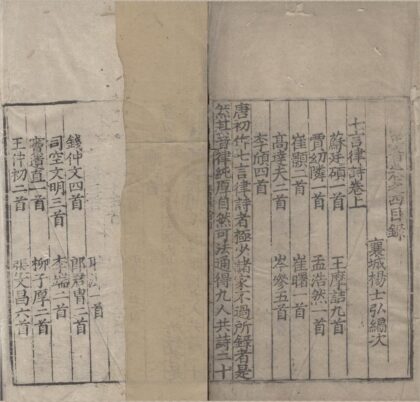 音卷之四目録
襄城楊士弘編次
七言律詩卷上
蘇廷碩一首 王摩詰九首
賈幼隣一首 孟浩然一首
崔顥二首 崔曙一首
高達夫二首 岑參五首
李頎四首
唐初作七言律詩者極少諸家不過所錄者是
然其音律純厚自然可法通得九人共詩二十
一首
錢仲文四首 郎君冑二首
司空文明三首 李端二首
竇遺直一首 柳子厚二首
王仲初二首 張文昌六首